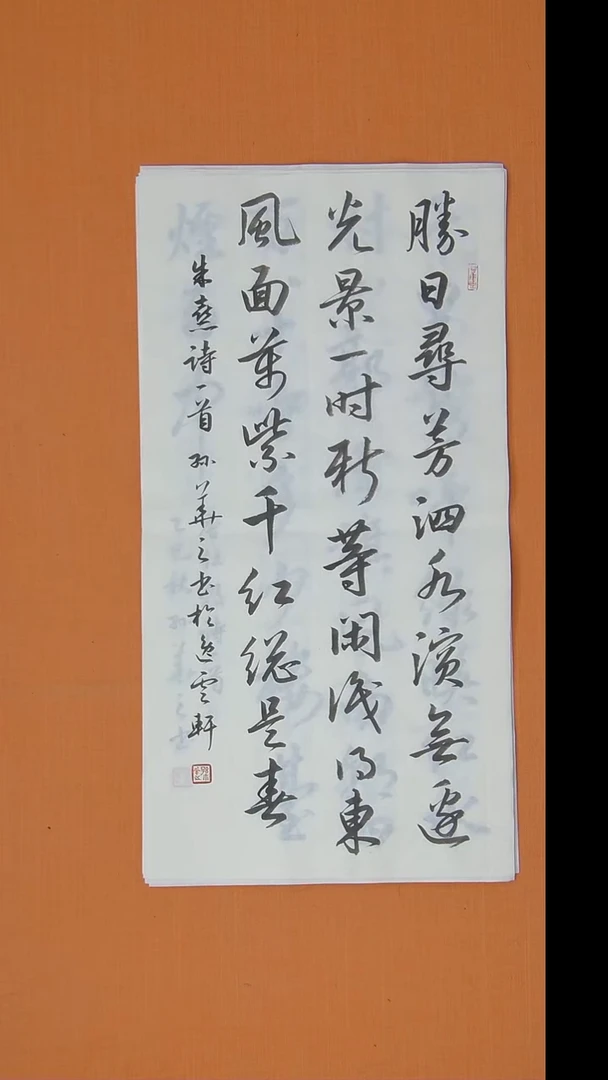 勝日尋芳泗水濱無邊
光景一时新等闲识得東
風面萬紫千红総是春
朱熹诗一首 孙華之书於逸雲軒